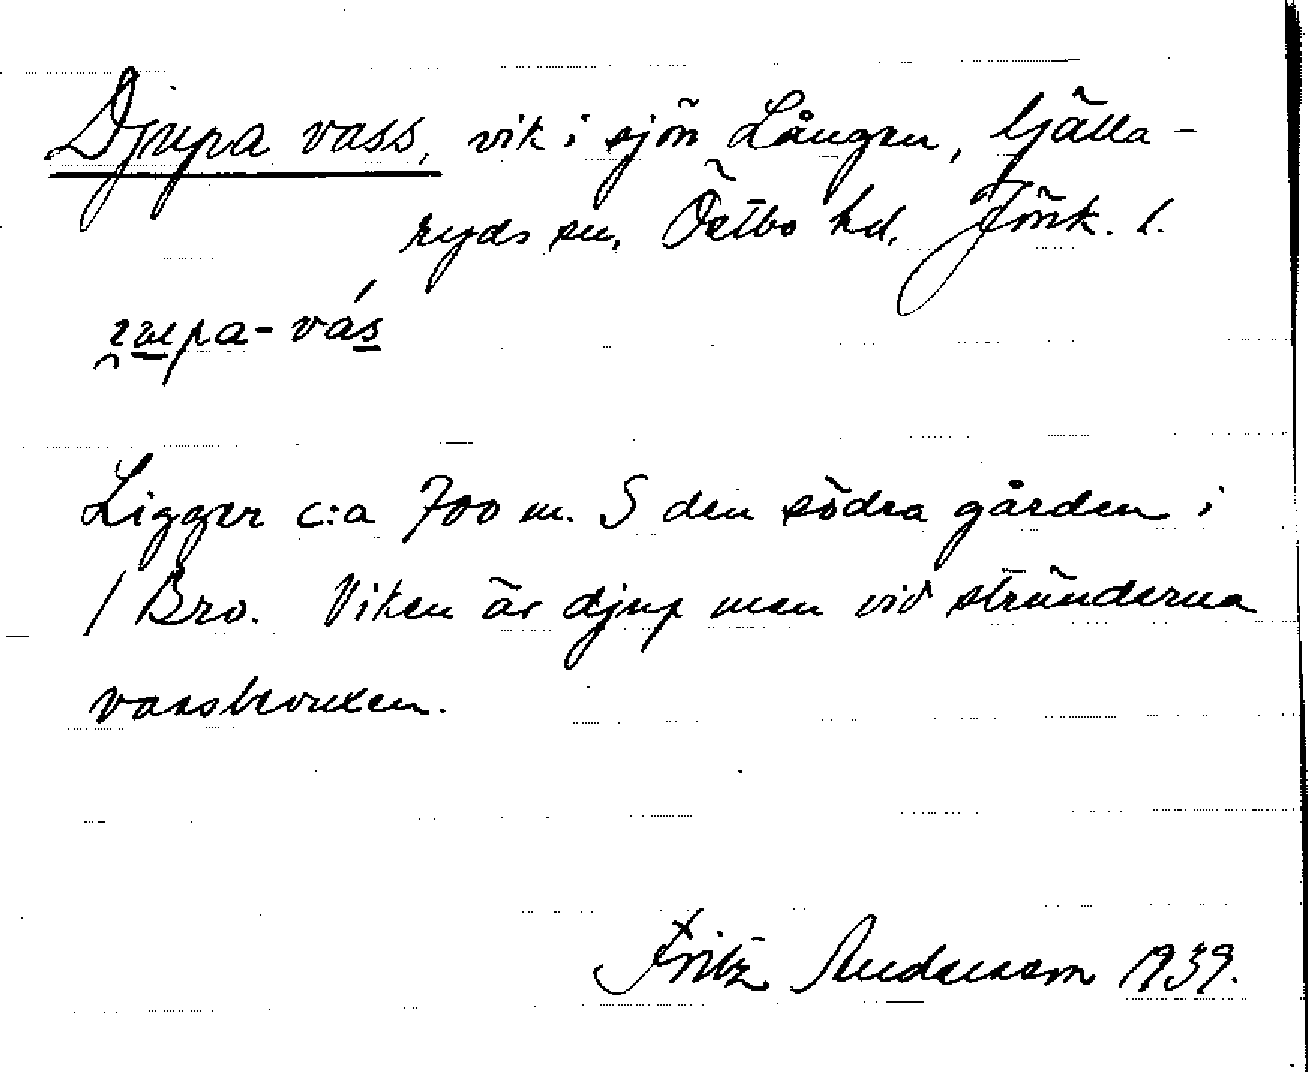 Djupa vass, vik i sjön Lången, Gälla-
ryds sn, Östbo hd. Jönk. l.
Ligger c:a 700 m. S den södra gården i
/ Bro. Viken är djup men vid stränderna
vassbevuxen.
Fritz Andersson 1939.